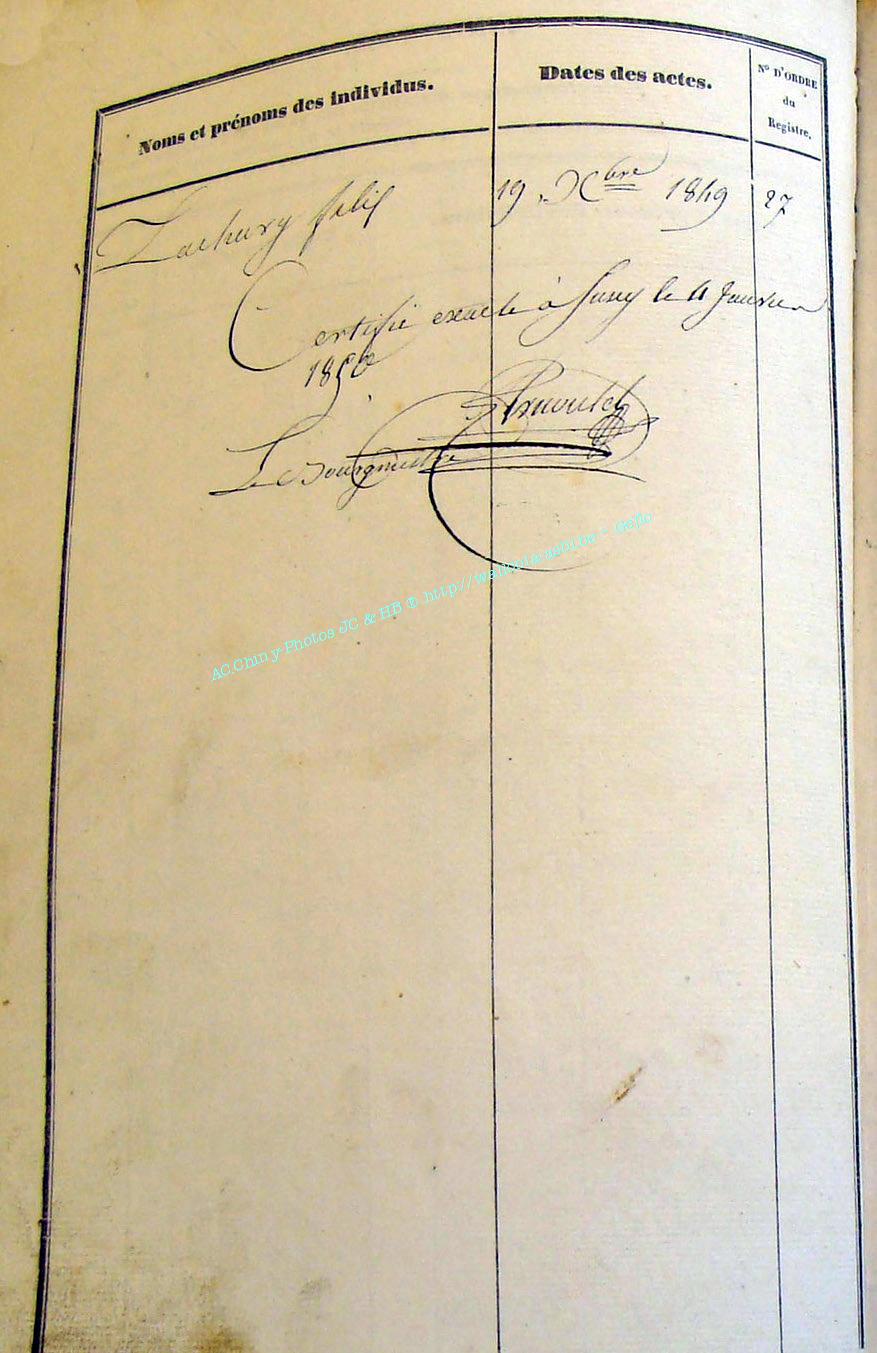 Noms et prénoms des individus.
Dates des actes.
N° D'ORDRE
du
Registre.
Zachary félix 19 Xbre 1849 27
Certifié exacte à Suxy le 4 Janvier
1850
Le Bourgmestre
AC.Chiny-Photos JC & HB ® http:// - Geflo